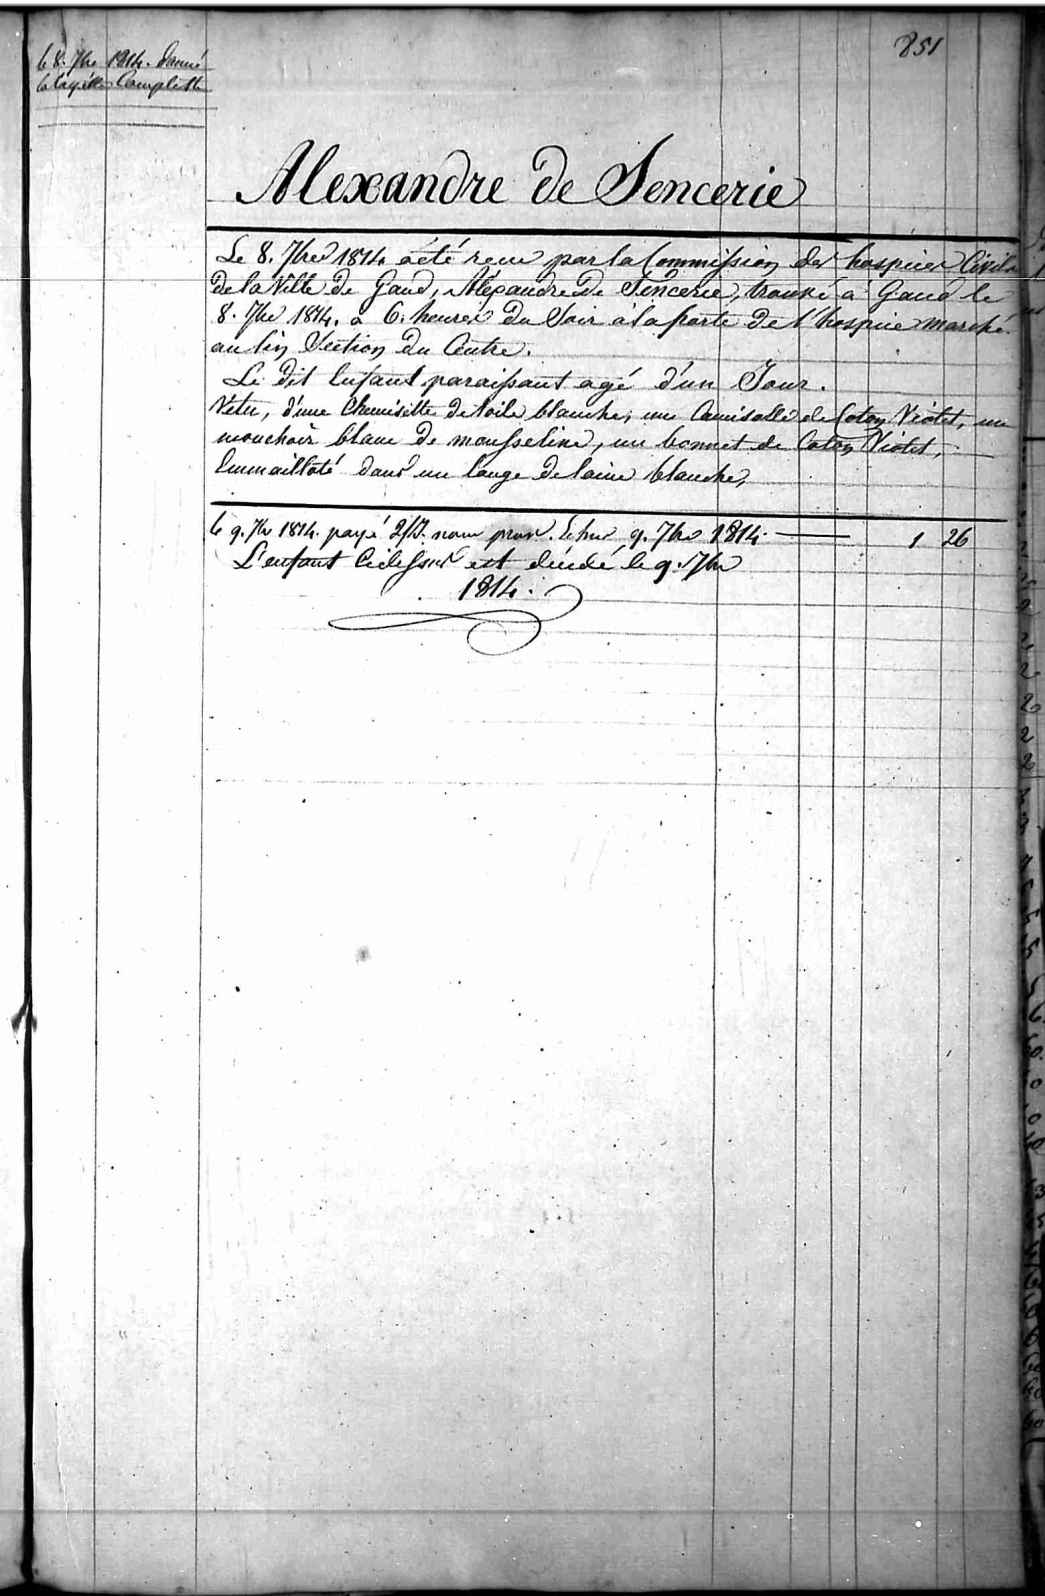 851
le 8. 7bre 1814. donné
la layette Complette
Alexandre de Sencerie
Le 8. 7bre 1814 a été reçu par la Commission des hospices Civils
de la Ville de Gand, Alexandre de Sencerie, trouvé à Gand le
8. 7bre 1814. a 6. heures du Soir à la porte de l'hospice marché
au lin Section du Centre.
Le dit Enfant paraissant agé d'un Jour.
Vetu, d'une Chemisette de toile blanche, une Camisolle de Coton Violet, un
mouchoir blanc de mousseline, un bonnet de Coton Violet,
Emmailloté dans un lange de laine blanche,
le 9. 7bre 1814. payé 9. 7bre 1814. 1 26
L'enfant Cidessus est décédé le 9. 7bre
1814.